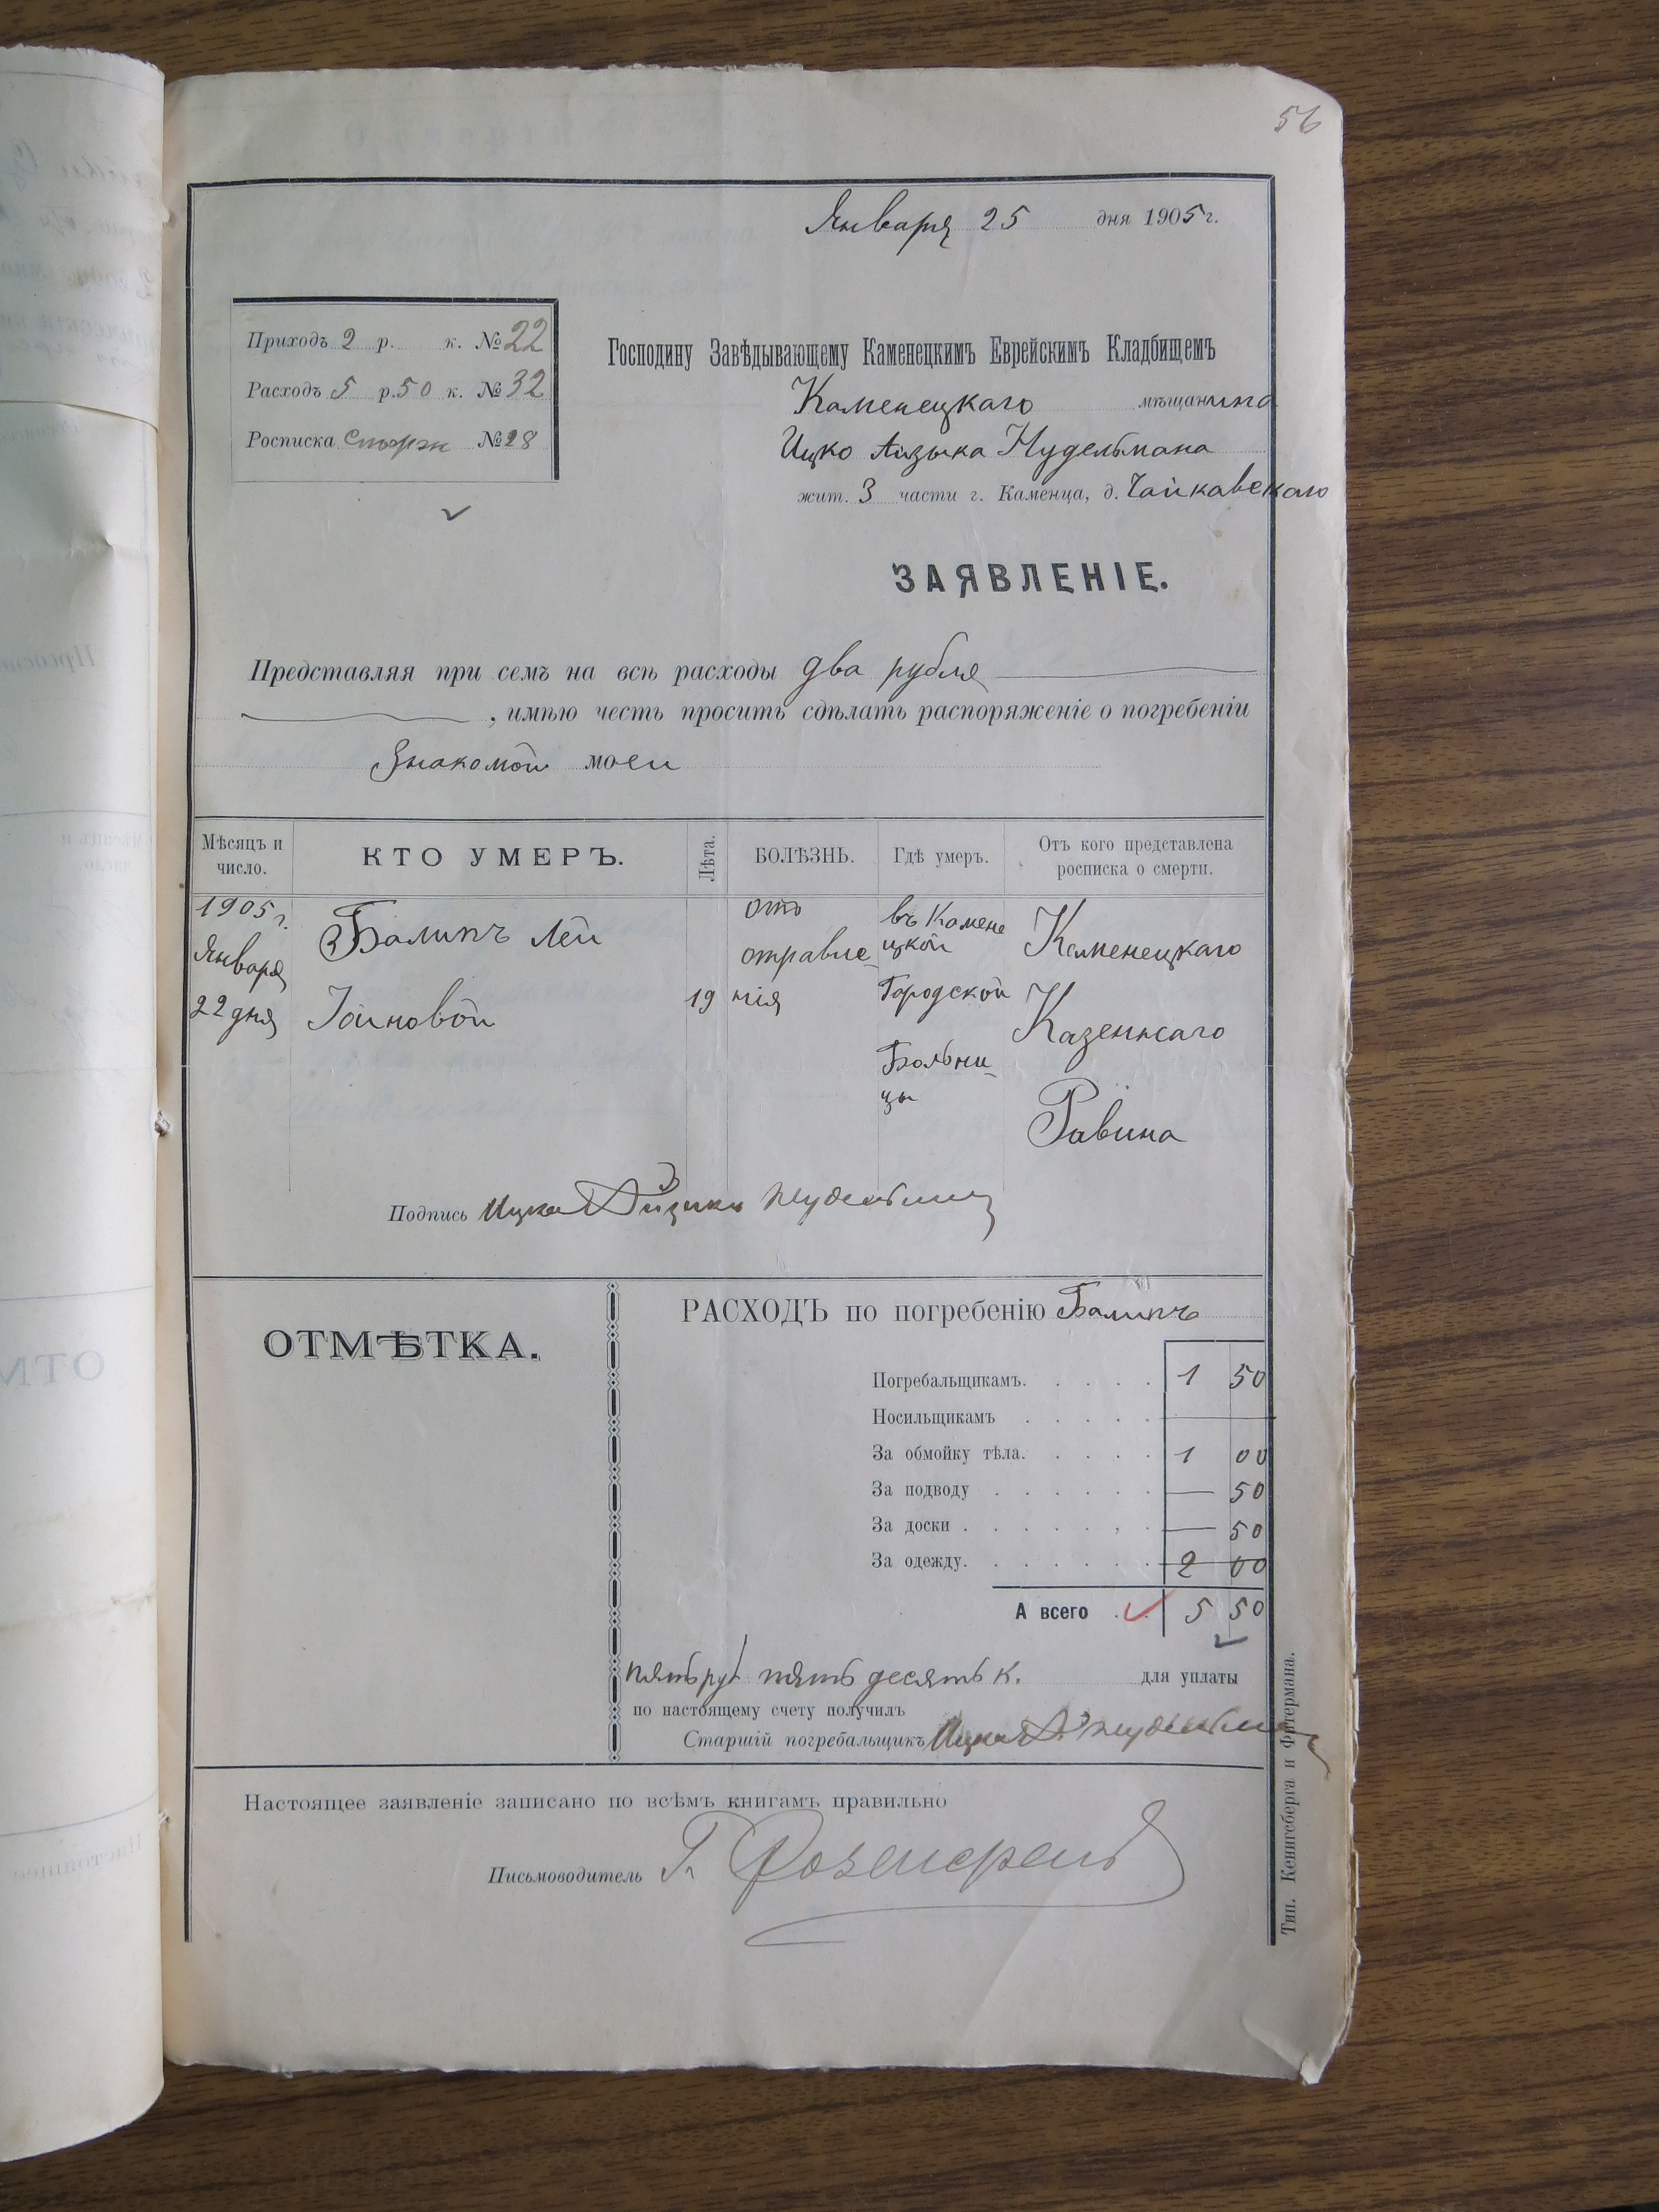 56
Января 25 дня 1905 г.
Приходъ 2 р. к. № 22
Расходъ 5 р. 50 к. № 32
Росписка № 28
Господину Завѣдывающему Каменецкимъ Еврейскимъ Кладбищемъ
Каменецкаго мѣщанина
Ицко Айзыка Нудельмана
жит. 3 части г. Каменца, д. Чайкавскаго
ЗАЯВЛЕНІЕ.
Представляя при семъ на всѣ расходы два рубля
, имѣю честь просить сдѣлать распоряженіе о погребеніи
Знакомой моеи
Мѣсяцъ и число.
КТО УМЕРЪ.
Лѣта.
БОЛѢЗНЬ.
Гдѣ умеръ.
Отъ кого представлена росписка о смерти.
1905 г.
Января
22 дня
Балипъ Леи
Іойновой
19
отъ
отравле-
нія
въ Камене
цкой
Городской
Больни-
цы
Каменецкаго
Казеннаго
Равина
Подпись Ицка Айзикъ Нудельман
ОТМѢТКА.
РАСХОДЪ по погребенію Балипъ
Погребальщикамъ. . . . . 1 50
Носильщикамъ . . . . .
За обмойку тѣла. . . . . 1 00
За подводу . . . . . . — 50
За доски . . . . . . . — 50
За одежду. . . . . . . 2 00
А всего . . 5 50
пять руб пять десятъ к. для уплаты
по настоящему счету получилъ
Старшій погребальщикъ Ицка А. Нудельман
Настоящее заявленіе записано по всѣмъ книгамъ правильно
Письмоводитель Г. Розенкранъ
Тип. Кенигсберга и Фитермана.